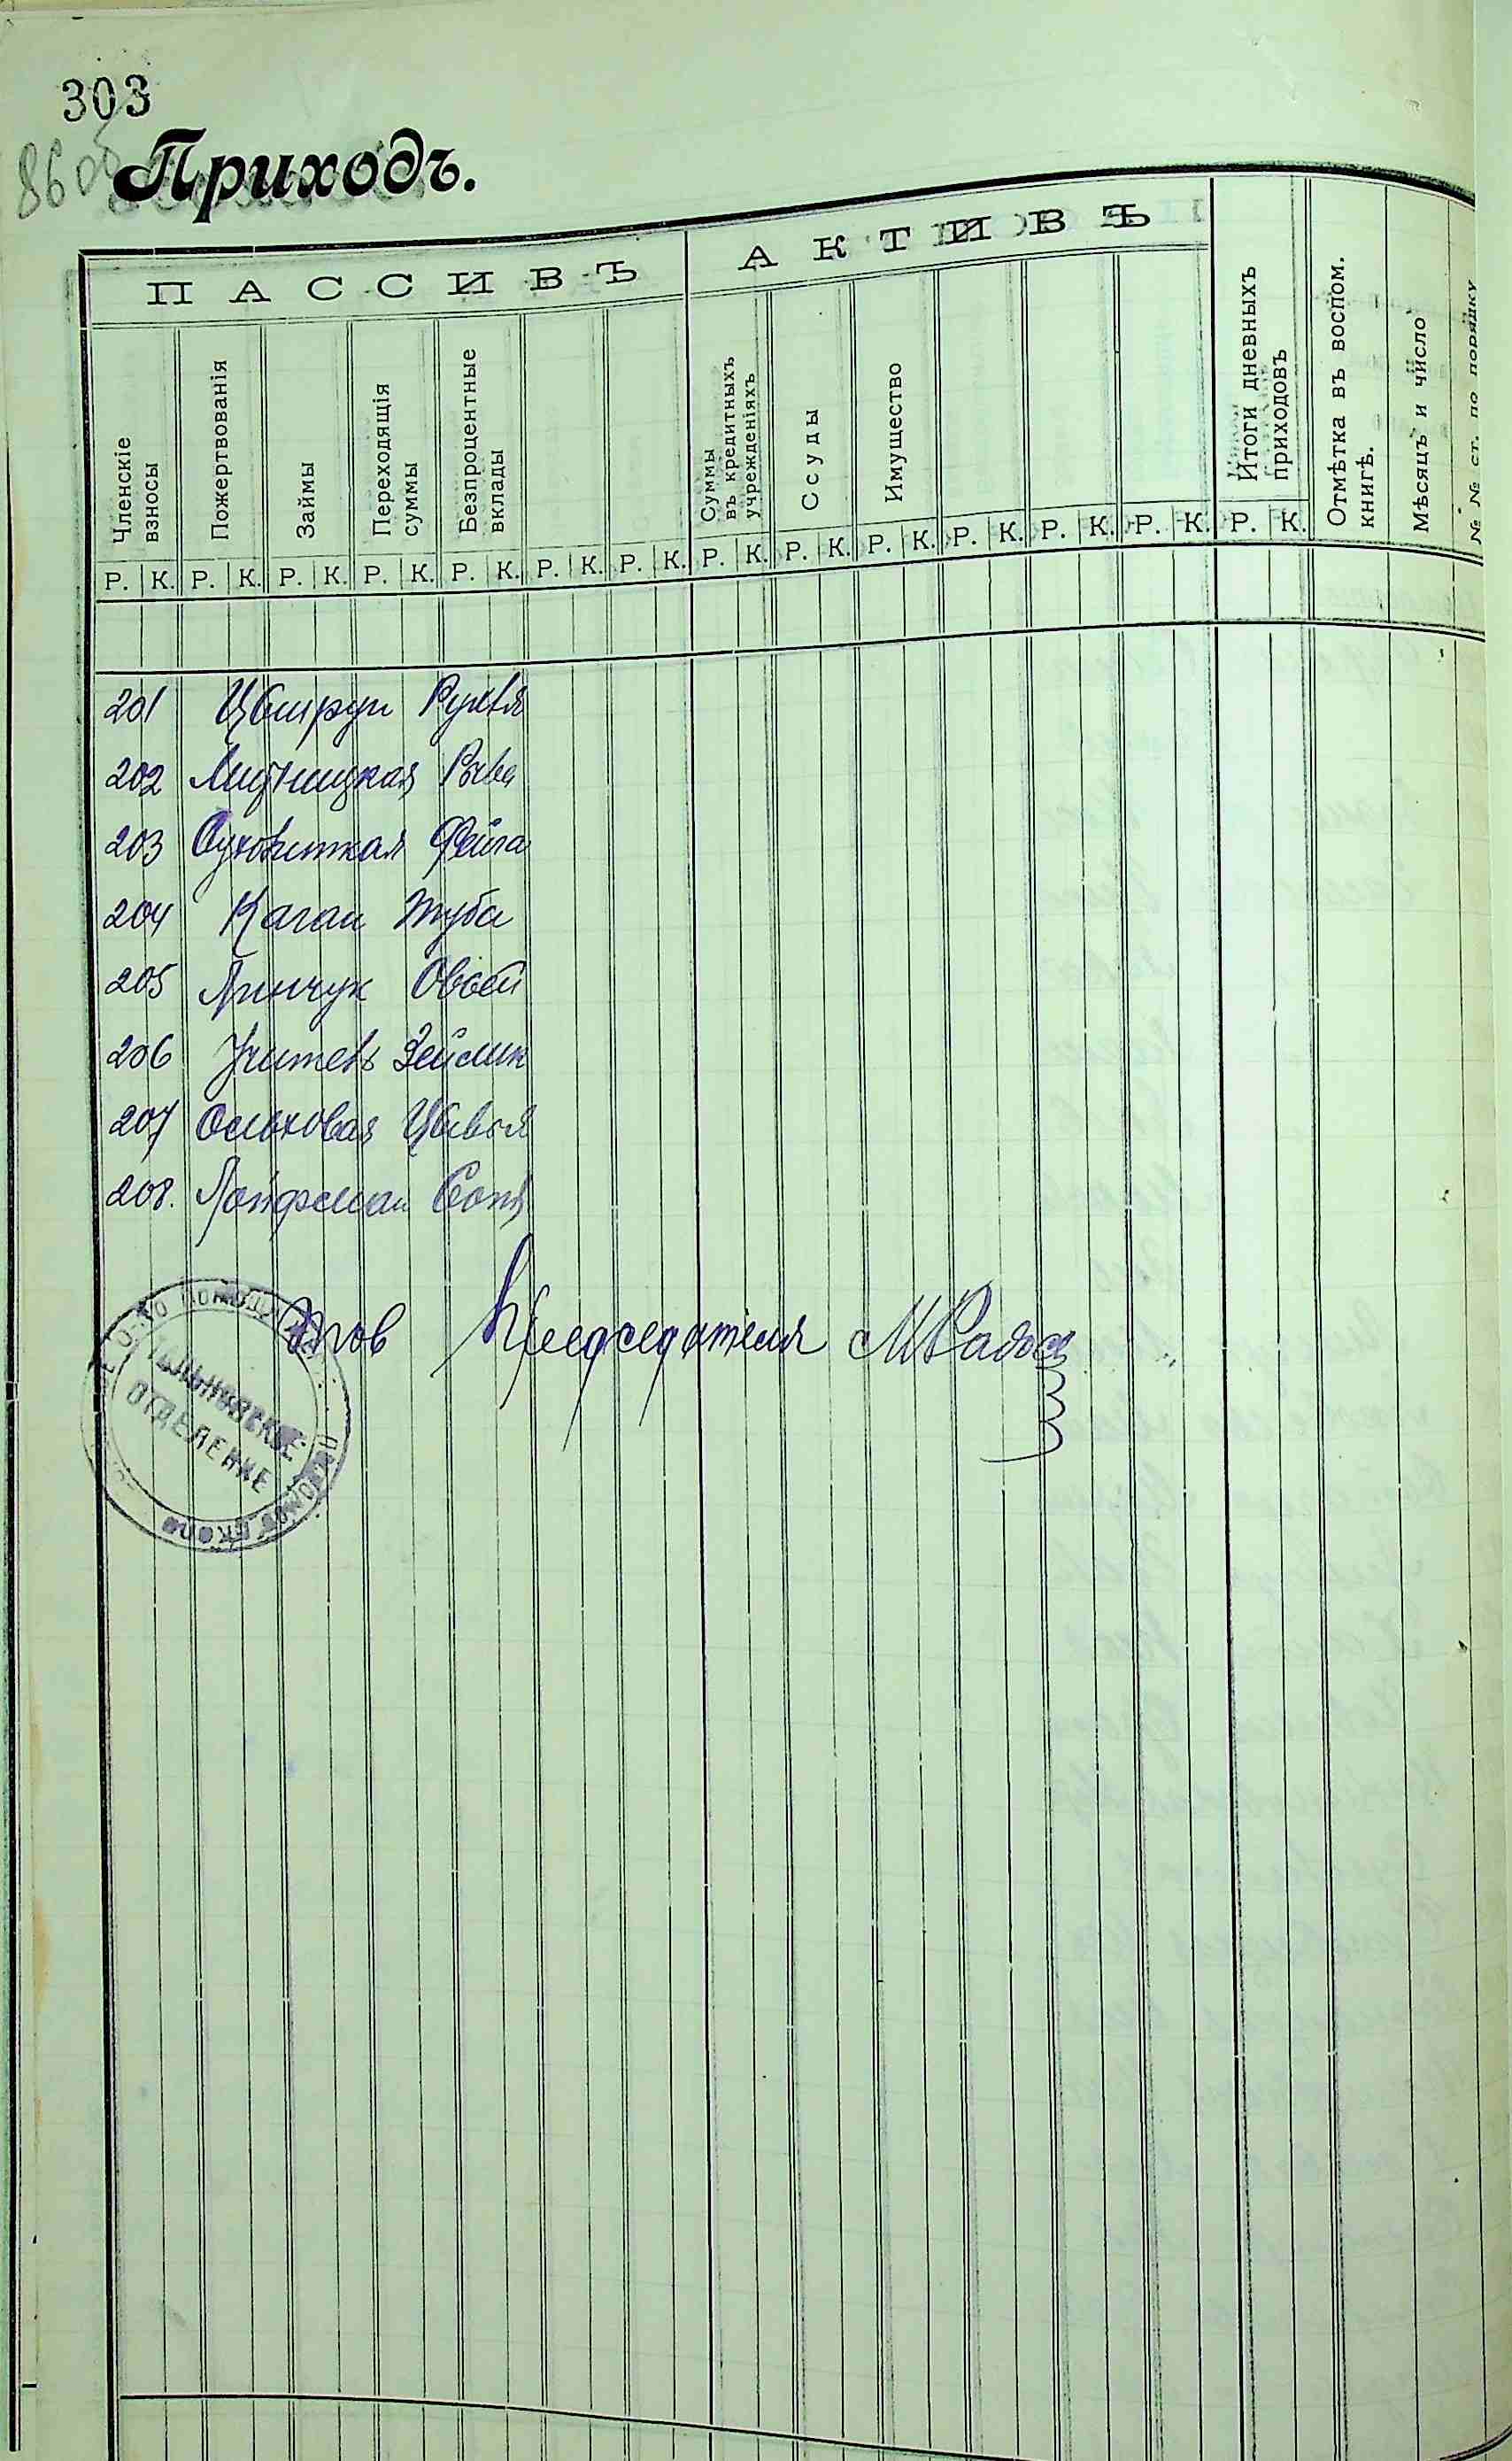 303
86 об
Приходъ.
ПАССИВЪ
АКТИВЪ
Членскіе взносы
Пожертвованія
Займы
Переходящія суммы
Безпроцентные вклады
Суммы въ кредитныхъ учрежденіяхъ
Ссуды
Имущество
Итоги дневныхъ приходовъ
Отмѣтка въ воспом. книгѣ.
Мѣсяцъ и число
№ № ст. по порядку
Р. К. Р. К. Р. К. Р. К. Р. К. Р. К. Р. К. Р. К. Р. К. Р. К. Р. К. Р. К. Р. К. Р. К.
201 Цвирун Рухля
202 Рива
203 Фейга
204 Каган Туба
205 Линчук Овсей
206 Учитель Зейлик
207 Ольховая Цивья
208. Лойфман Соня
Председателя М Рабой
ОТДЕЛЕНИЕ